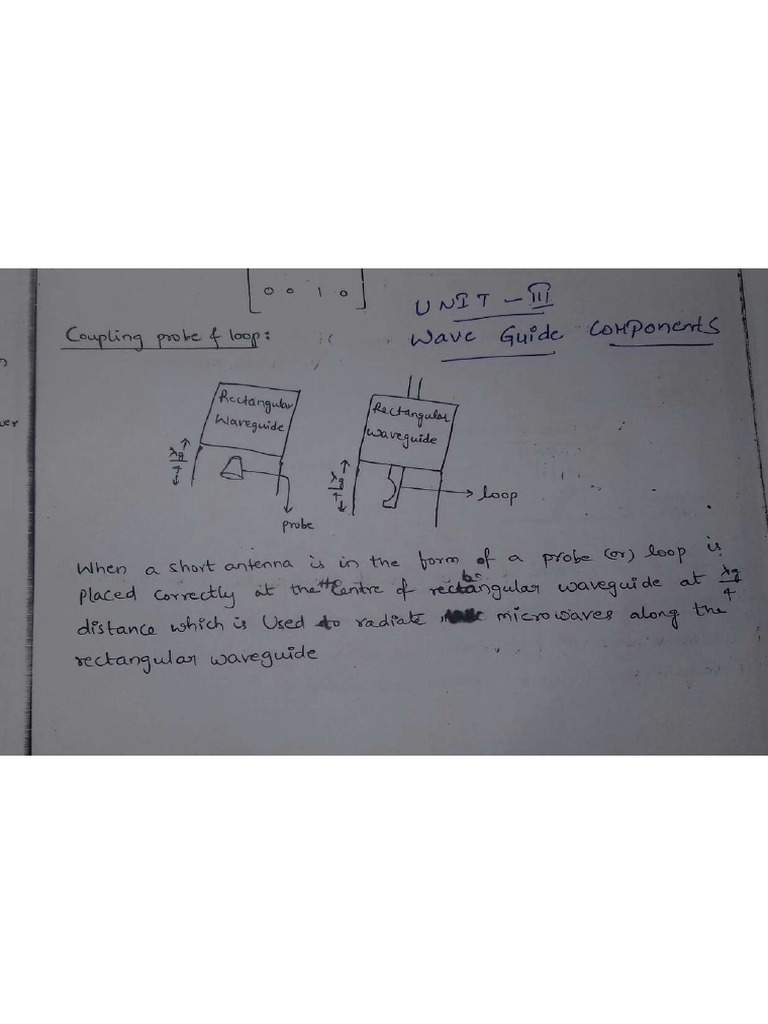 0 0 1 0
UNIT - III
Wave Guide Components
Coupling probe & loop:
Rectangular
Waveguide
Rectangular
waveguide
λg
λg
loop
probe
When a short antenna is in the form of a probe (or) loop is
placed correctly at the centre of rectangular waveguide at λg/4
distance which is Used to radiate microwaves along the
rectangular waveguide